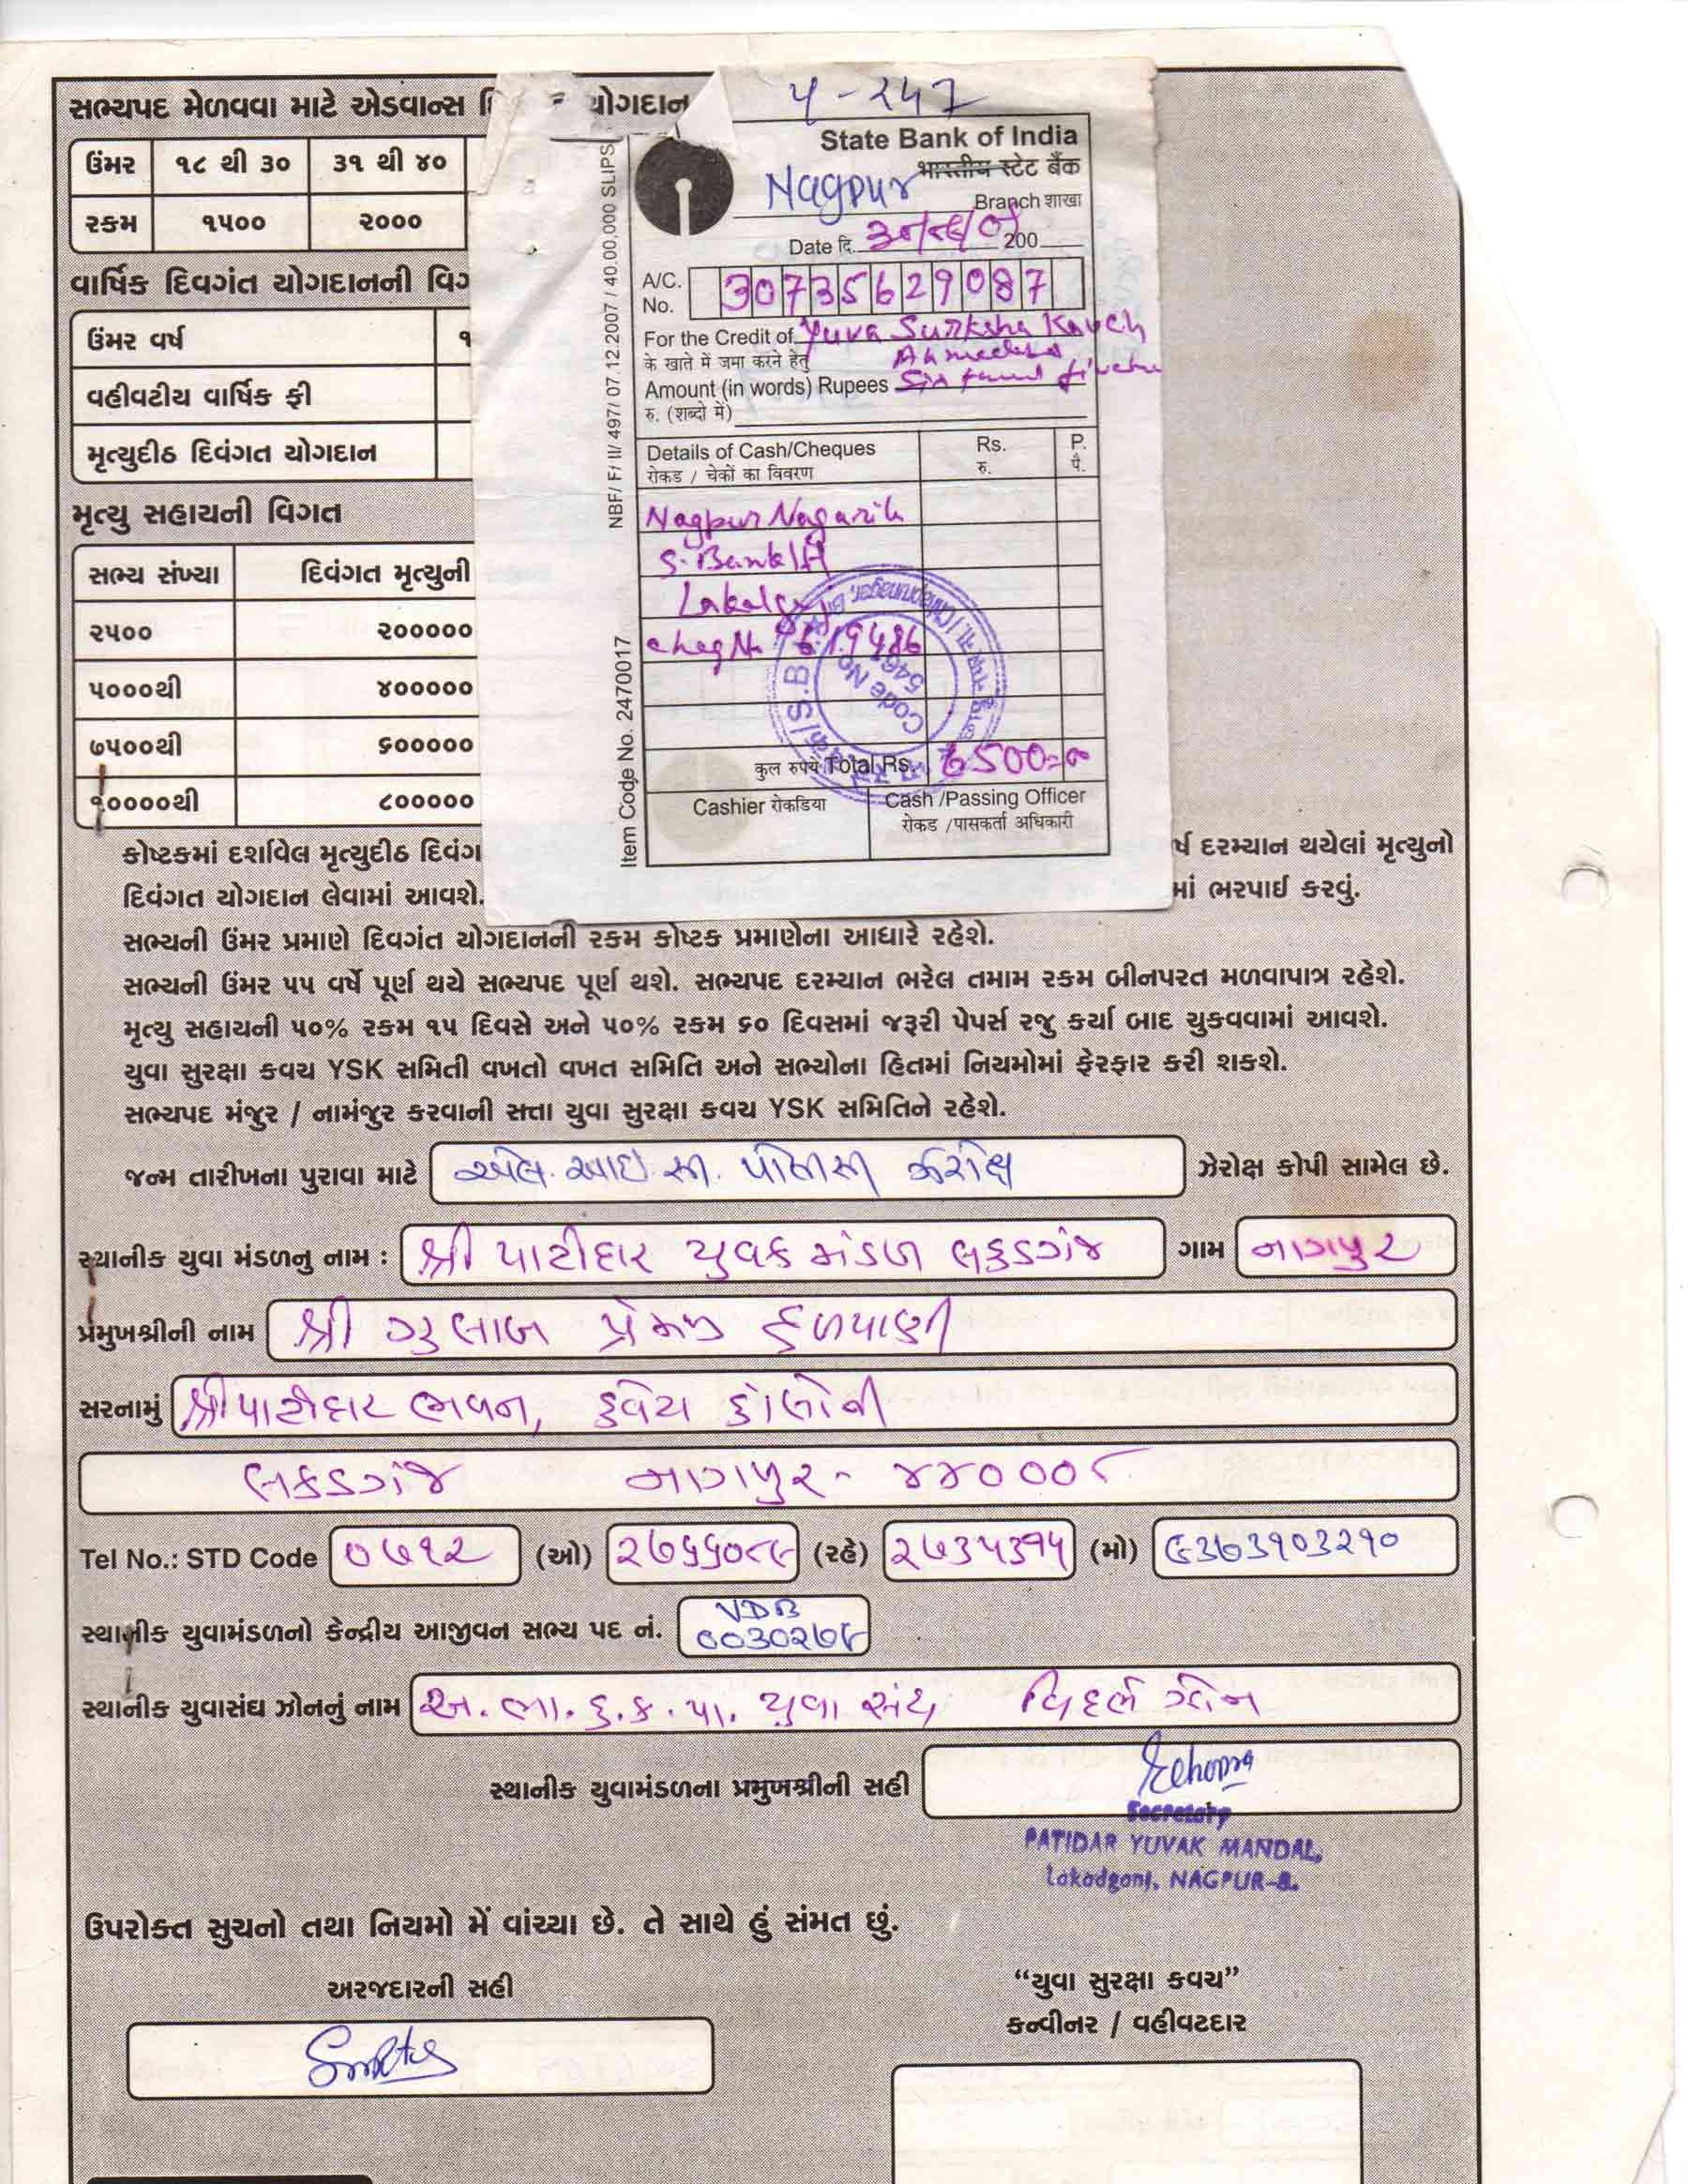 સભ્યપદ મેળવવા માટે એડવાન્સ
યોગદાન
ઉંમર ૧૮ થી ૩૦ ૩૧ થી ૪૦
રકમ ૧૫૦૦ ૨૦૦૦
વાર્ષિક દિવગંત યોગદાનની
ઉંમર વર્ષ ૧
વહીવટીય વાર્ષિક ફી
મૃત્યુદીઠ દિવંગત યોગદાન
મૃત્યુ સહાયની વિગત
સભ્ય સંખ્યા દિવંગત મૃત્યુની
૨૫૦૦ ૨૦૦૦૦૦
૫૦૦૦થી ૪૦૦૦૦૦
૭૫૦૦થી ૬૦૦૦૦૦
૧૦૦૦૦થી ૮૦૦૦૦૦
NBF/ F/ II/ 497/ 07.12.2007 / 40,00,000 SLIPS
Item Code No. 2470017
State Bank of India
भारतीय स्टेट बैंक
Nagpur
Branch शाखा
Date दि. 200
A/C. No. 30735629087
For the Credit of Yuva Surksha Kavch
के खाते में जमा करने हेतु
Amount (in words) Rupees
रु. (शब्दो में)
Details of Cash/Cheques Rs. P.
रोकड / चेकों का विवरण रु. पै.
Nagpur Nagarik
S. Bank
cheq No 619486
Code No
कुल रुपये Total Rs. 6500=00
Cashier रोकडिया Cash /Passing Officer
रोकड /पासकर्ता अधिकारी
કોષ્ટકમાં દર્શાવેલ મૃત્યુદીઠ દિવંગ
ર્ષ દરમ્યાન થયેલાં મૃત્યુનો
દિવંગત યોગદાન લેવામાં આવશે.
માં ભરપાઈ કરવું.
સભ્યની ઉંમર પ્રમાણે દિવગંત યોગદાનની રકમ કોષ્ટક પ્રમાણેના આધારે રહેશે.
સભ્યની ઉંમર ૫૫ વર્ષે પૂર્ણ થયે સભ્યપદ પૂર્ણ થશે. સભ્યપદ દરમ્યાન ભરેલ તમામ રકમ બીનપરત મળવાપાત્ર રહેશે.
મૃત્યુ સહાયની ૫૦% રકમ ૧૫ દિવસે અને ૫૦% રકમ ૬૦ દિવસમાં જરૂરી પેપર્સ રજુ કર્યા બાદ ચુકવવામાં આવશે.
યુવા સુરક્ષા કવચ YSK સમિતી વખતો વખત સમિતિ અને સભ્યોના હિતમાં નિયમોમાં ફેરફાર કરી શકશે.
સભ્યપદ મંજુર / નામંજુર કરવાની સત્તા યુવા સુરક્ષા કવચ YSK સમિતિને રહેશે.
જન્મ તારીખના પુરાવા માટે એલ. આઇ. સી. પોલીસી ઝેરોક્ષ ઝેરોક્ષ કોપી સામેલ છે.
સ્થાનીક યુવા મંડળનુ નામ : શ્રી પાટીદાર યુવક મંડળ લકડગંજ ગામ નાગપુર
પ્રમુખશ્રીની નામ શ્રી ગુલાબ પ્રેમજી
સરનામું શ્રી પાટીદાર ભવન, કવેટા કોલોની
લકડગંજ નાગપુર - ૪૪૦૦૦૮
Tel No.: STD Code ૦૭૧૨ (ઓ) (રહે) ૨૭૩૫૩૧૫ (મો) ૯૩૭૩૧૦૩૨૧૦
સ્થાનીક યુવામંડળનો કેન્દ્રીય આજીવન સભ્ય પદ નં.
સ્થાનીક યુવાસંઘ ઝોનનું નામ અ. ભા. ક. ક. પા. યુવા સંઘ વિદર્ભ ઝોન
સ્થાનીક યુવામંડળના પ્રમુખશ્રીની સહી
Secretary
PATIDAR YUVAK MANDAL,
Lakadganj, NAGPUR-8.
ઉપરોક્ત સુચનો તથા નિયમો મેં વાંચ્યા છે. તે સાથે હું સંમત છું.
અરજદારની સહી
“યુવા સુરક્ષા કવચ”
કન્વીનર / વહીવટદાર